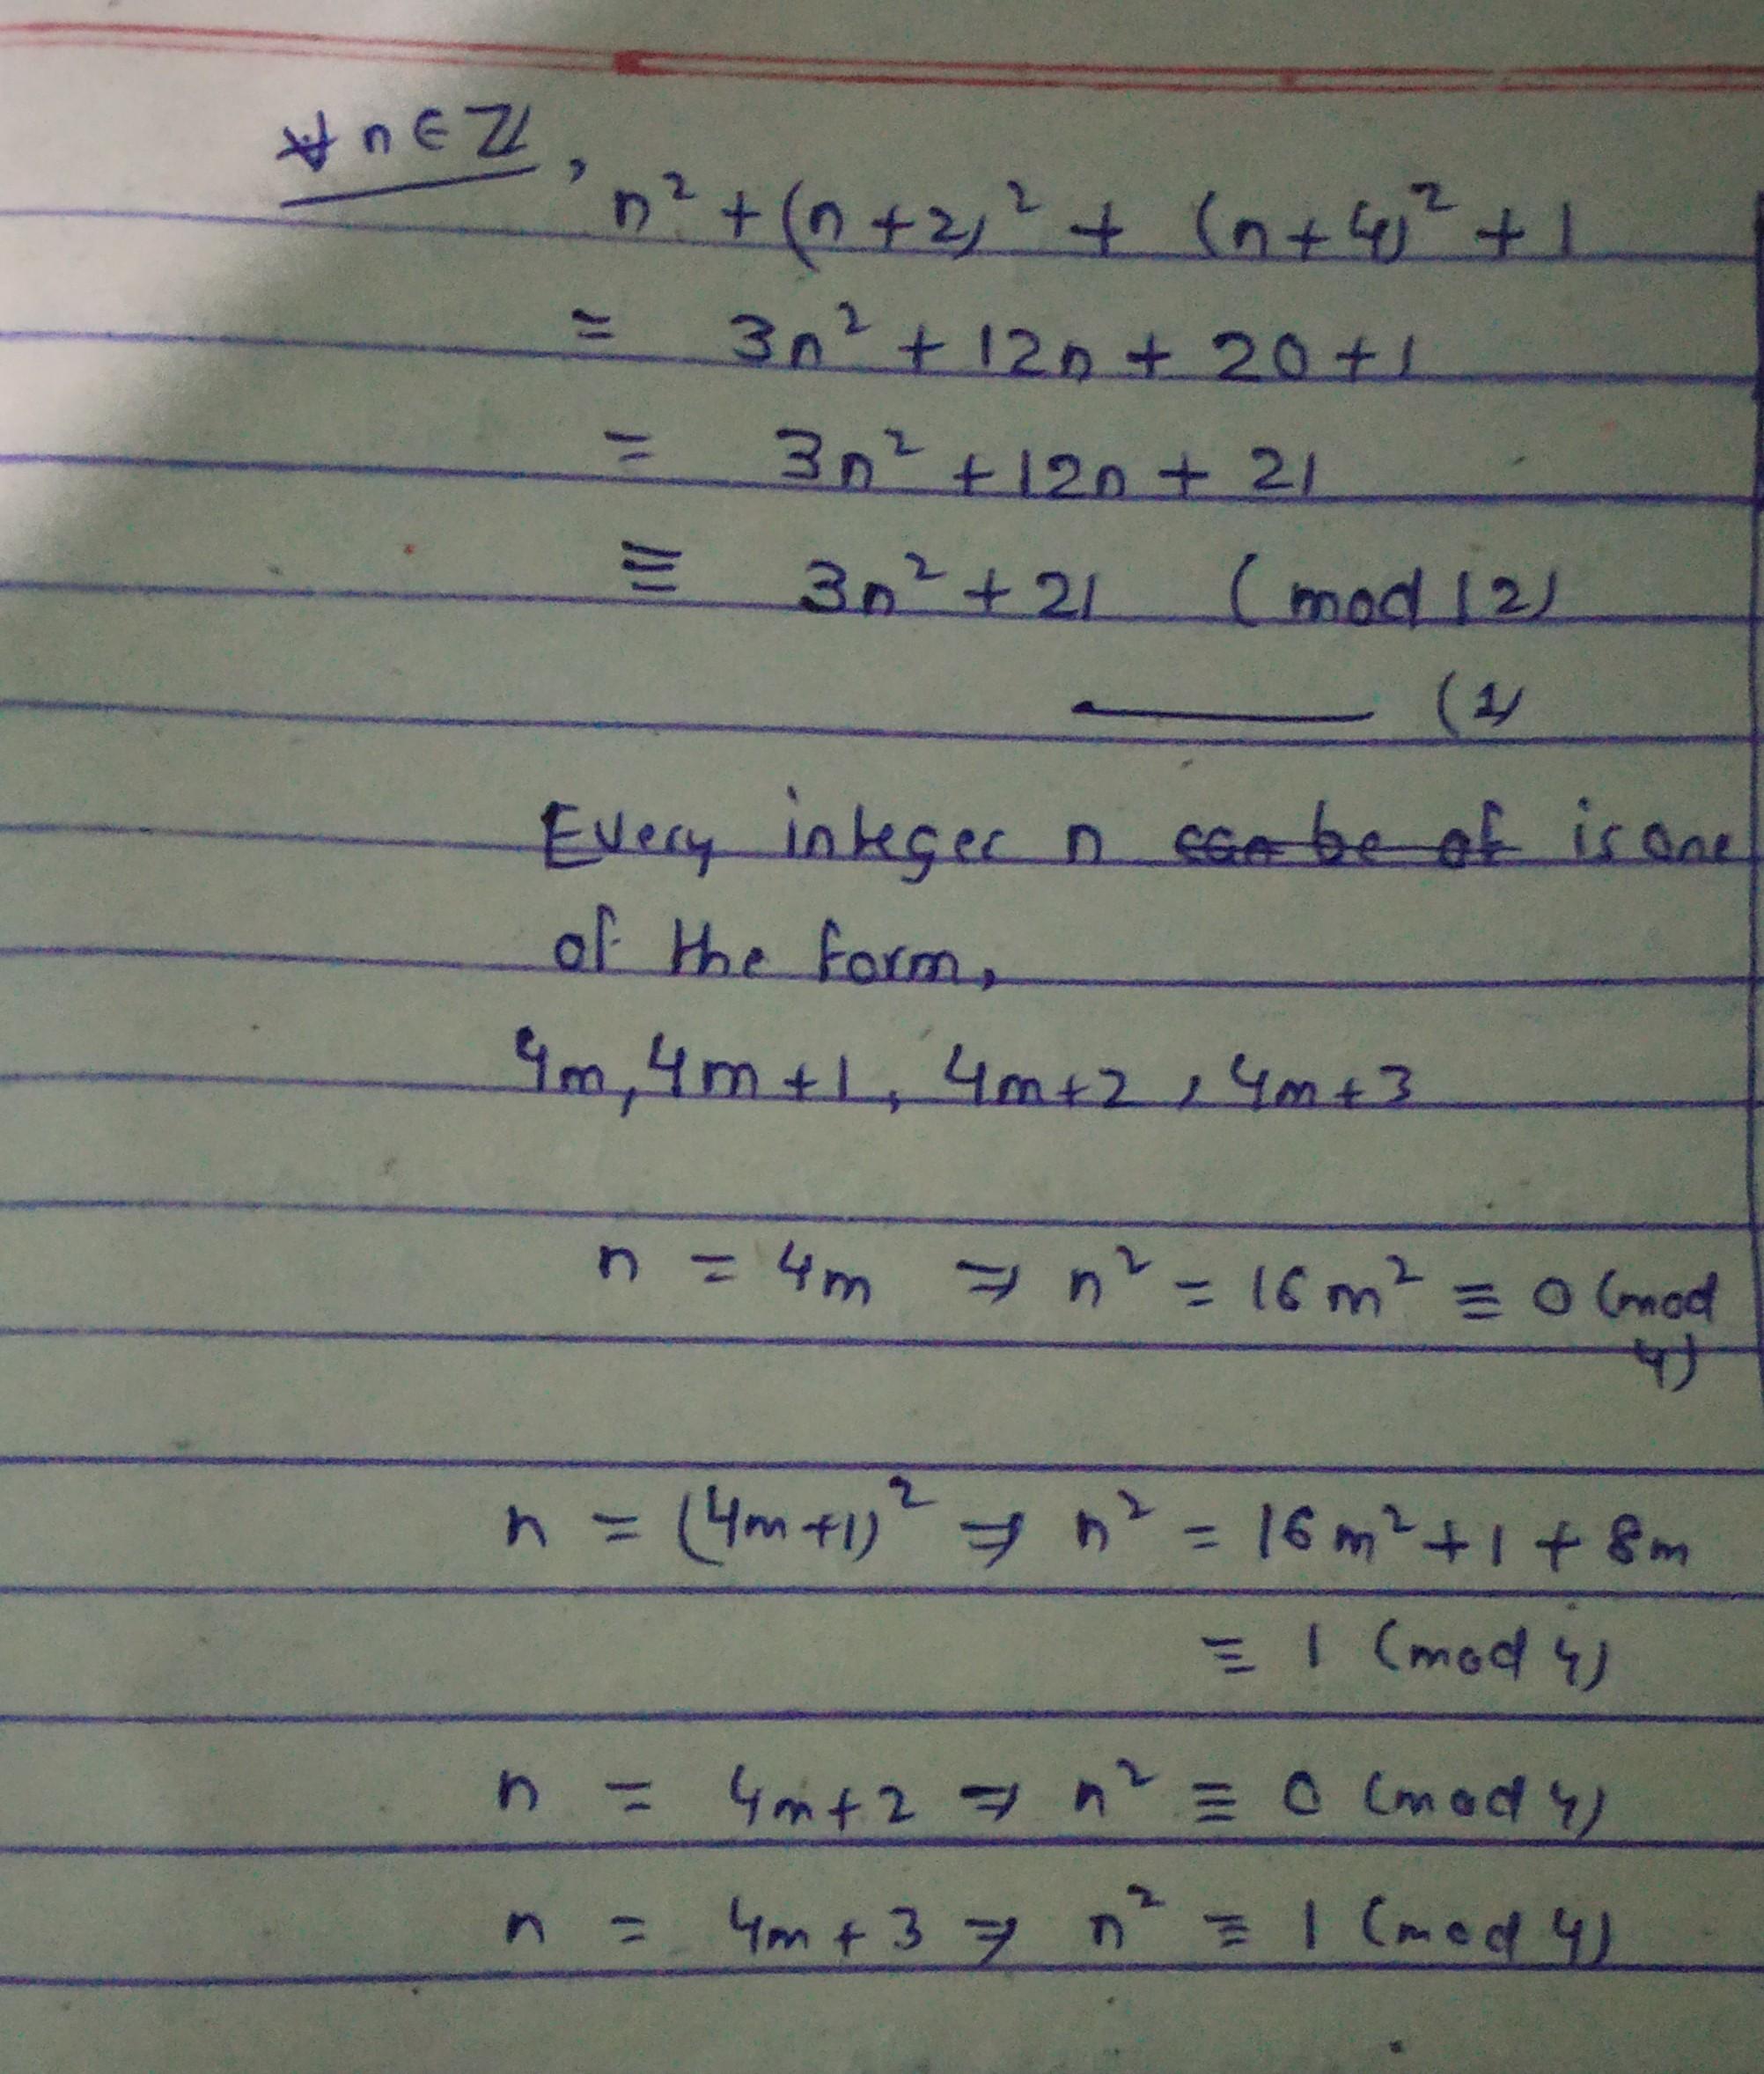 ∀ n ∈ ℤ, n² + (n+2)² + (n+4)² + 1
= 3n² + 12n + 20 + 1
= 3n² + 12n + 21
≡ 3n² + 21 (mod 12)
——— (1)
Every integer n can be of is one
of the form,
4m, 4m+1, 4m+2, 4m+3
n = 4m ⇒ n² = 16m² ≡ 0 (mod
4)
n = (4m+1)² ⇒ n² = 16m² + 1 + 8m
≡ 1 (mod 4)
n = 4m+2 ⇒ n² ≡ 0 (mod 4)
n = 4m+3 ⇒ n² ≡ 1 (mod 4)